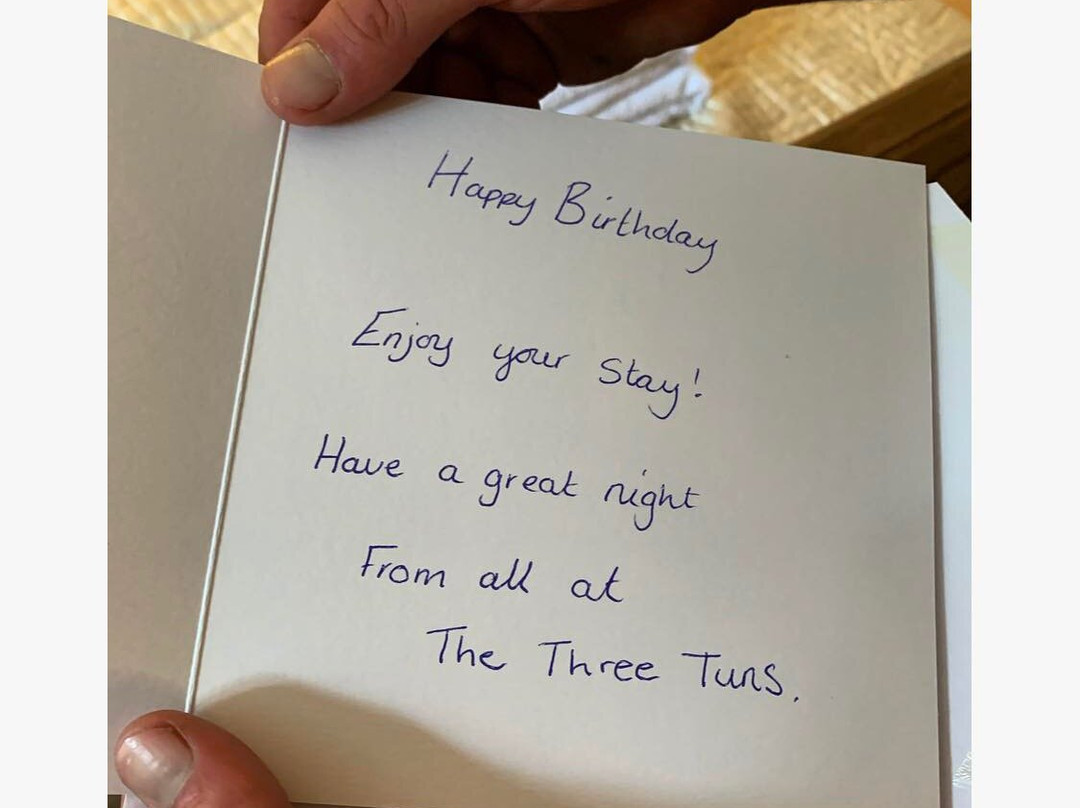 Happy Birthday
Enjoy your Stay!
Have a great night
From all at
The Three Tuns.